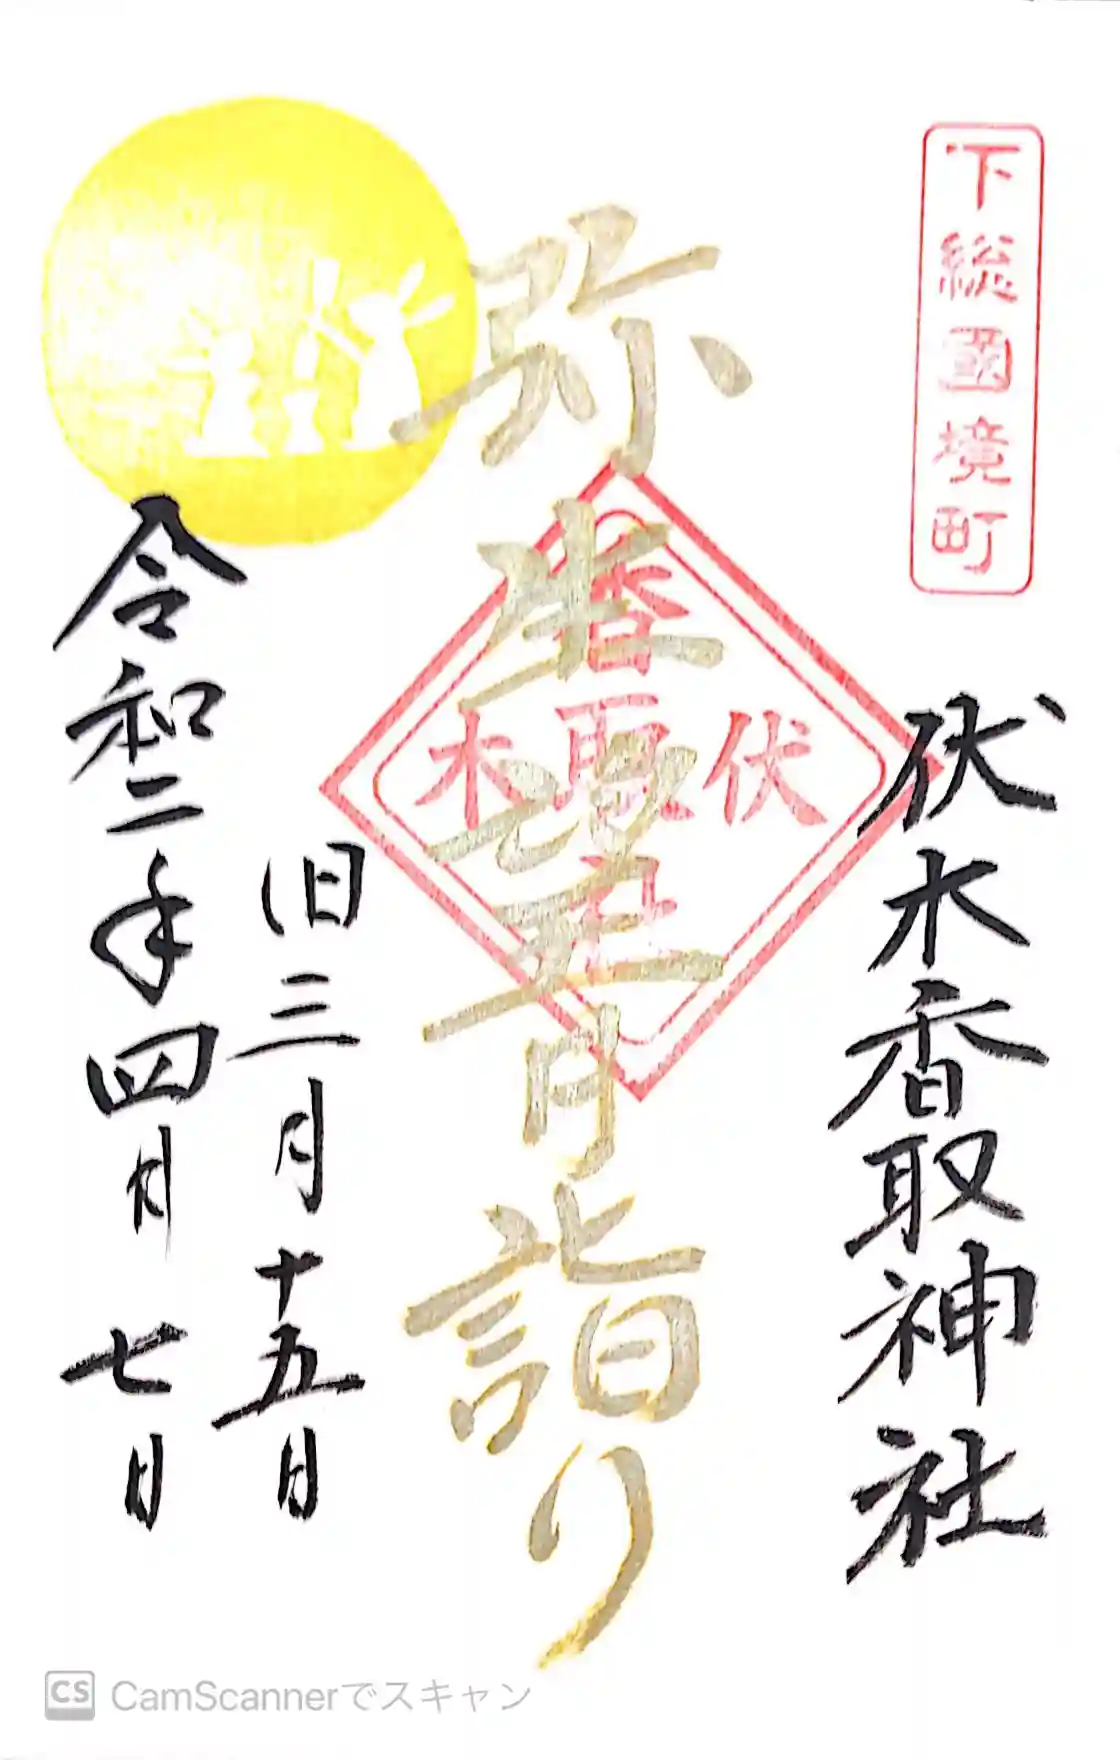 下総國境町
伏木香取神社
弥生望月詣り
伏木
香取
社
旧三月十五日
令和二年四月七日
CS CamScannerでスキャン